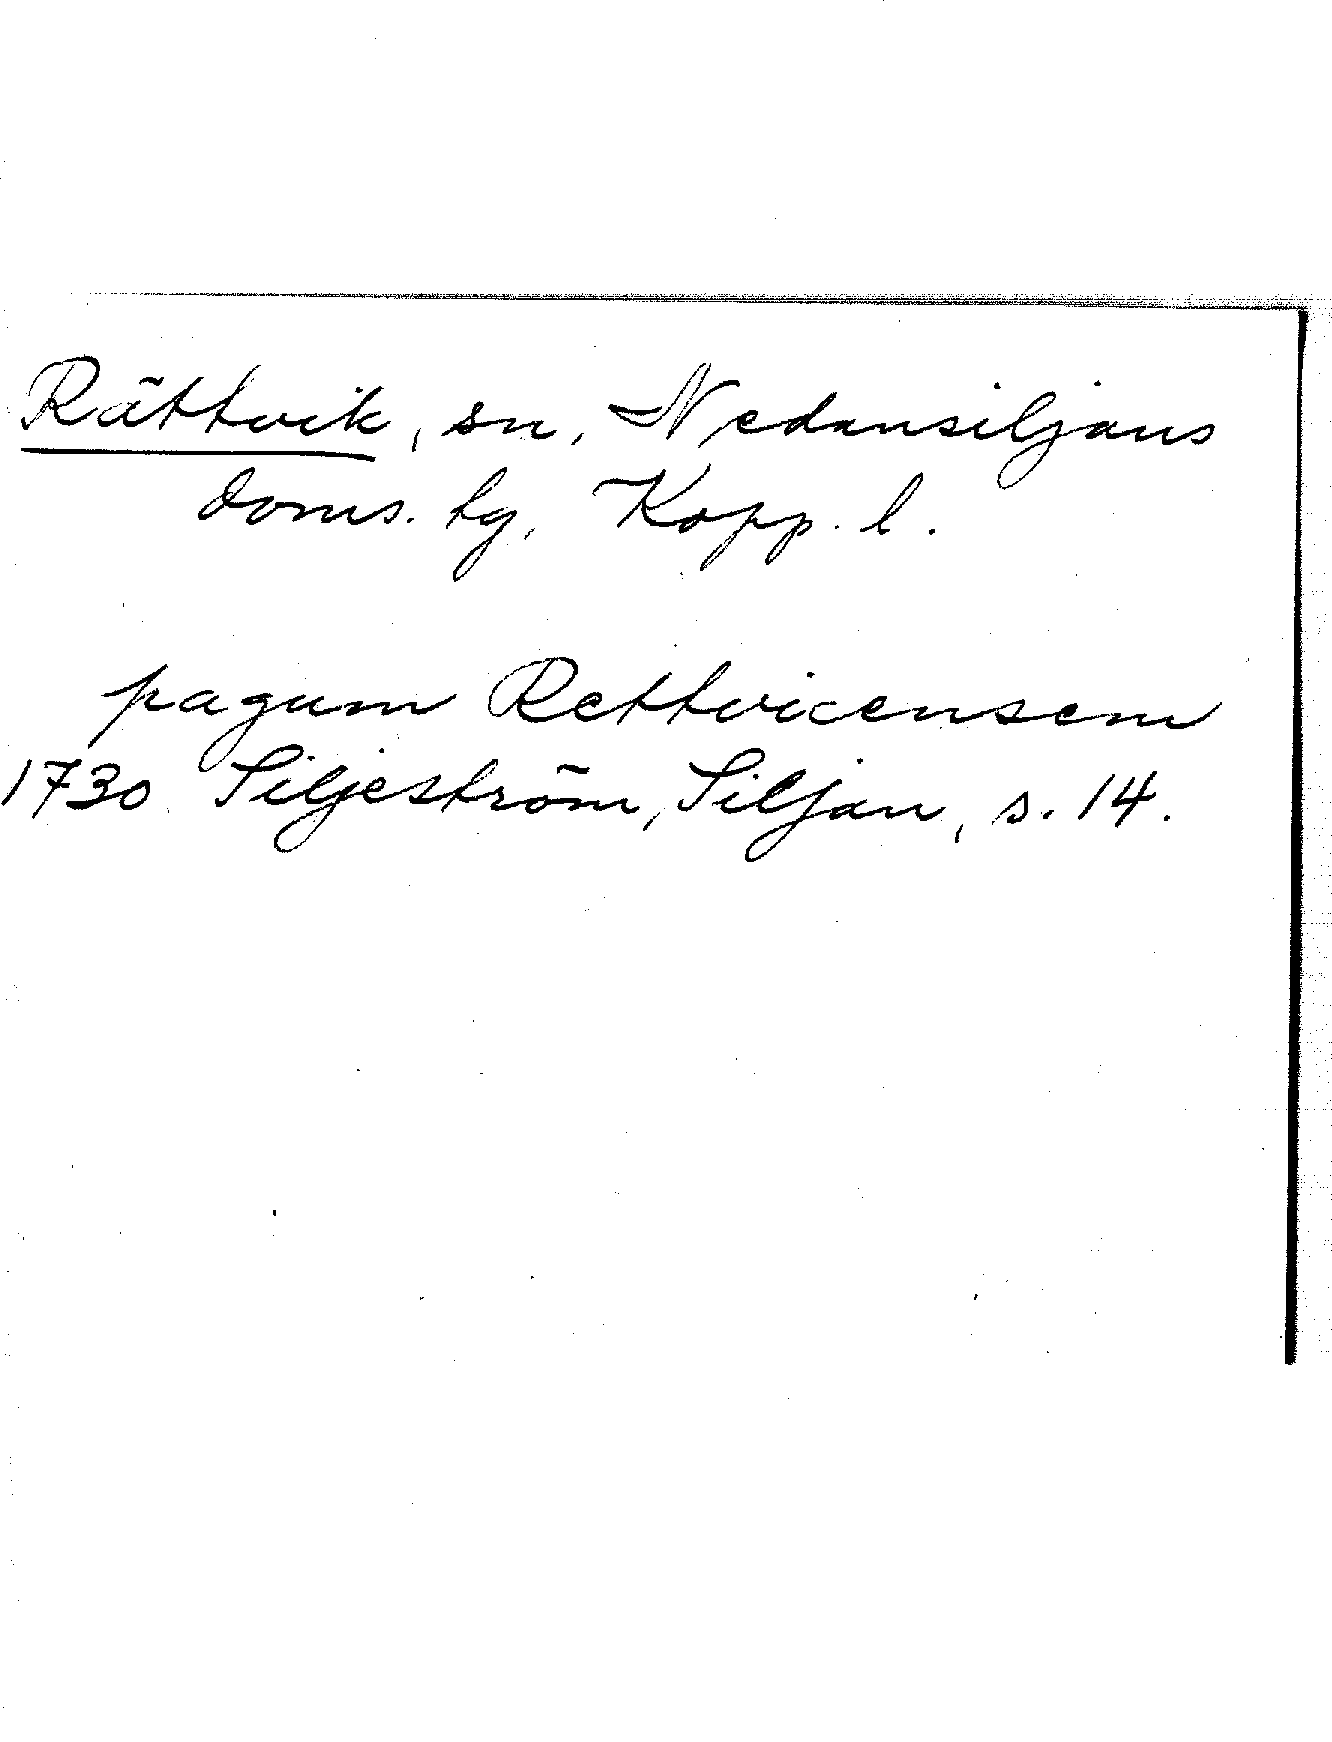 Rättvik, sn, Nedansiljans
doms. tg, Kopp. l.
pagum Rettvicensem
1730 Siljeström, Siljan, s. 14.